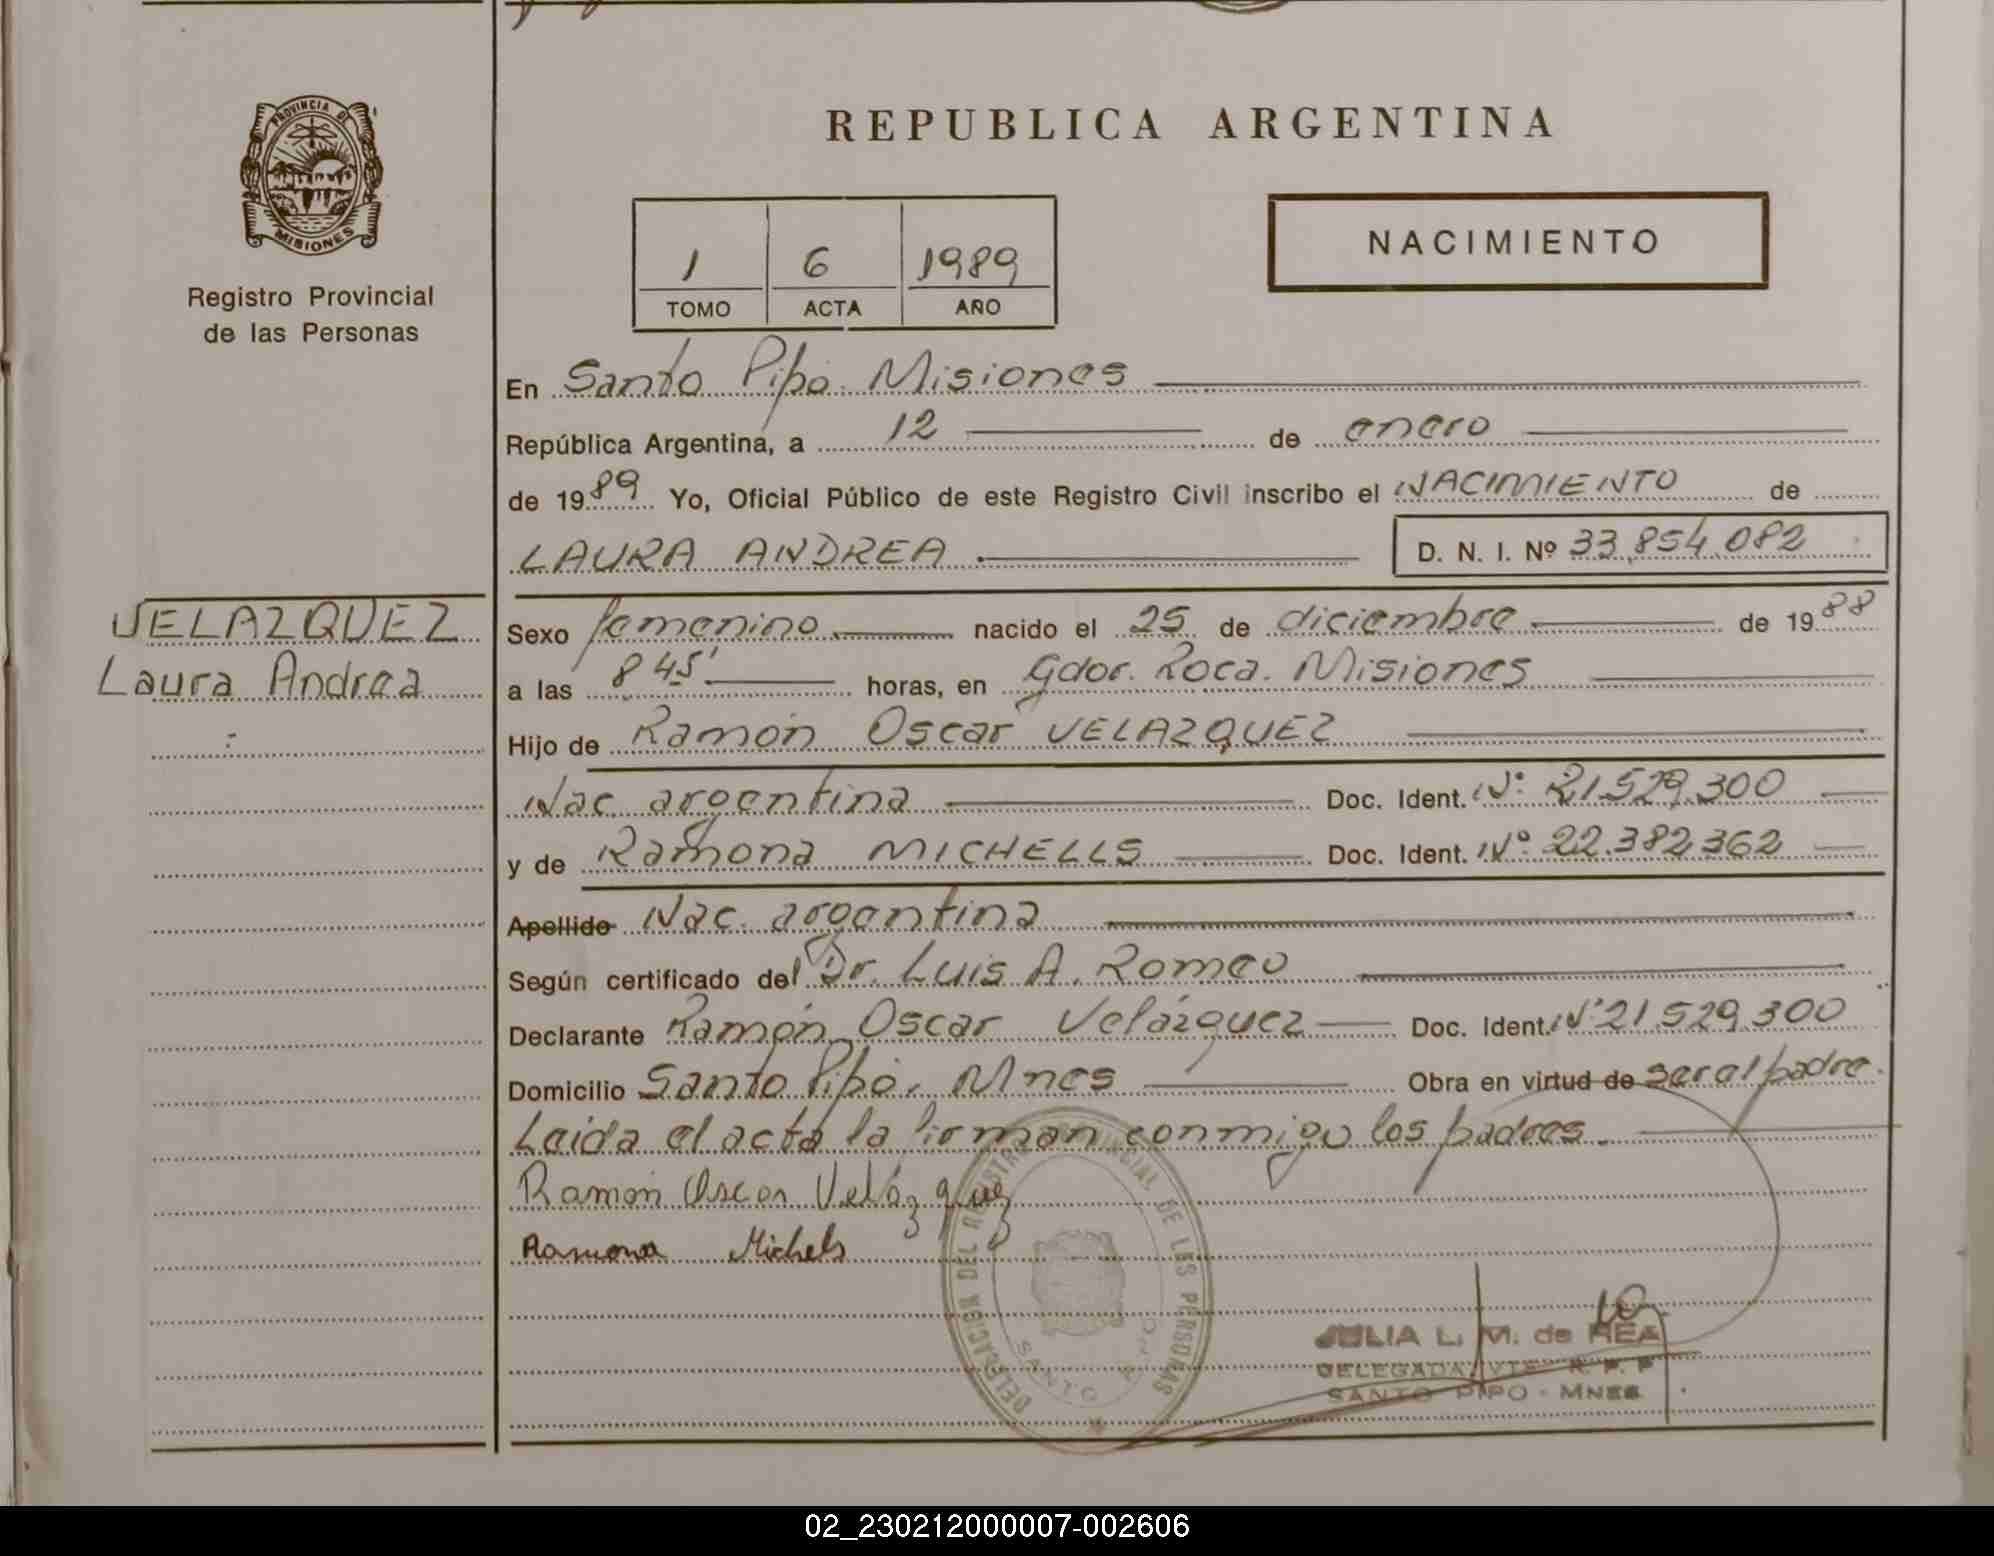 PROVINCIA DE
MISIONES
Registro Provincial
de las Personas
VELAZQUEZ
Laura Andrea
REPUBLICA ARGENTINA
1 6 1989
TOMO ACTA AÑO
NACIMIENTO
En Santo Pipó. Misiones
República Argentina, a 12 de enero
de 1989 Yo, Oficial Público de este Registro Civil inscribo el NACIMIENTO de
LAURA ANDREA D. N. I. Nº 33.854.082
Sexo femenino nacido el 25 de diciembre de 1988
a las 8 45' horas, en Gdor. Roca. Misiones
Hijo de Ramón Oscar VELAZQUEZ
Nac. argentina Doc. Ident. Nº 21.529.300
y de Ramona MICHELLS Doc. Ident. Nº 22.382.362
Apellido Nac. argentina
Según certificado del Dr. Luis A. Romeo
Declarante Ramón Oscar Velázquez Doc. Ident. Nº 21.529.300
Domicilio Santo Pipó. Mnes Obra en virtud de ser el padre.
Leida el acta la firman conmigo los padres.
Ramon Oscar Velázquez
Ramona Michels
DELEGACION DEL REGISTRO PROVINCIAL DE LAS PERSONAS
SANTO PIPO
JULIA L. M. de REA
DELEGADA
SANTO PIPO - MNES
02_230212000007-002606